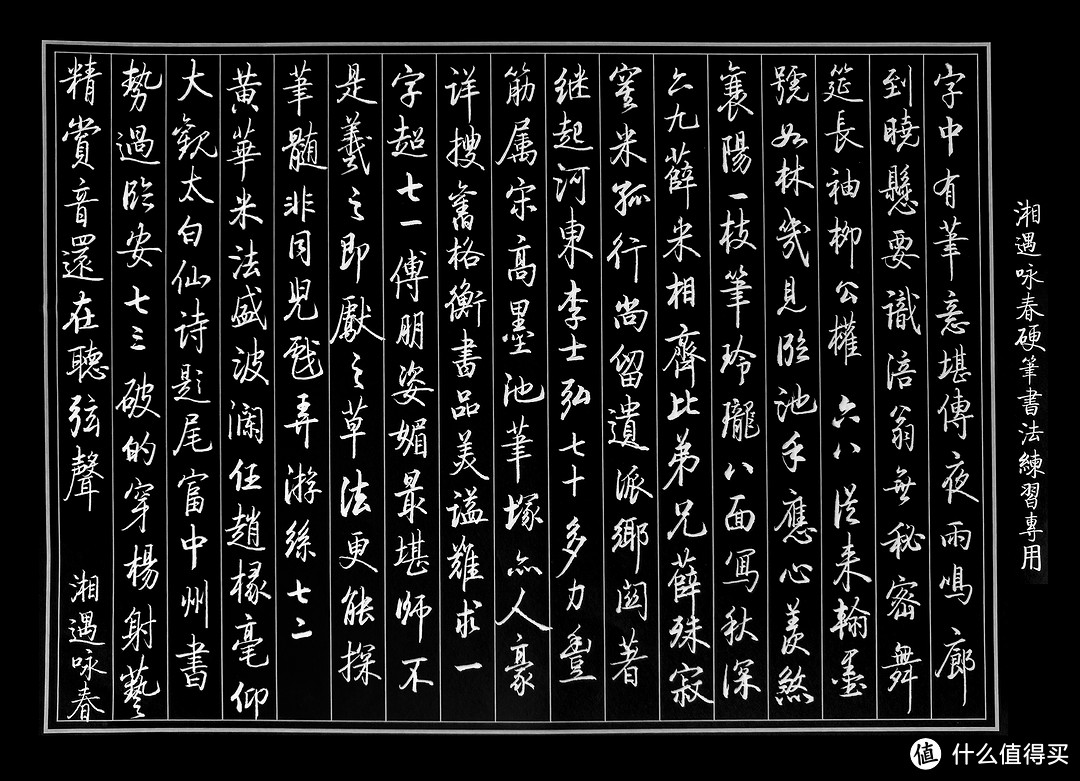 字中有筆意堪傳夜雨鳴廊
到曉懸要識涪翁無秘密舞
筵長袖柳公權六八從来翰墨
號如林幾見臨池手應心羨煞
襄陽一枝筆玲瓏八面寫秋深
六九薛米相齊比弟兄薛殊寂
寞米孤行尚留遺派鄉閭著
继起河東李士弘七十多力豐
筋属宋高墨池筆塚亦人豪
详搜舊格衡書品美谥難求一
字超七一傅朋姿媚最堪師不
是羲之即獻之草法更能探
筆髓非同兒戲弄游絲七二
黄華米法盛波澜任趙椽毫仰
大觀太白仙诗題尾富中州書
勢過臨安七三破的穿楊射藝
精賞音還在聽弦聲
湘遇咏春
湘遇咏春硬筆書法練習專用
值 什么值得买